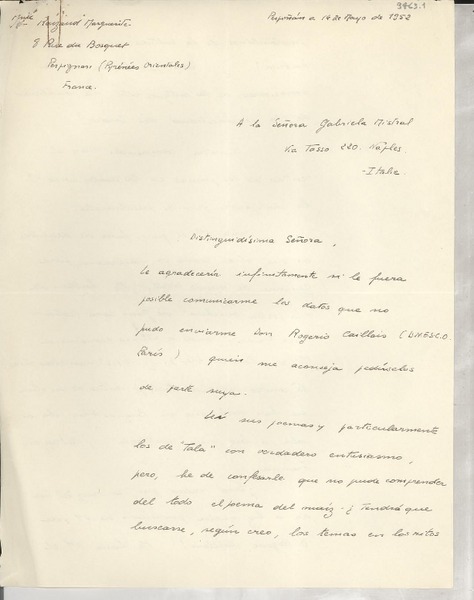 3963.1
Perpiñán a 14 de Mayo de 1952
Marguerite
9 Rue du Bosquet
Perpignan (Pyrénées Orientales)
France.
A la Señora Gabriela Mistral
Via Tasso 220. Naples.
-Italie.
Distinguidísima Señora,
Le agradecería infinitamente si le fuera
posible comunicarme los datos que no
pudo enviarme Don Rogerio Caillois (UNESCO.
Paris) quien me aconseja pedírselos
de parte suya.
sus poemas y particularmente
los de "Tala" con verdadero entusiasmo,
pero, he de confesarle que no pude comprender
del todo el poema del maíz. ¿Tendrá que
buscarse, según creo, los temas en los ritos